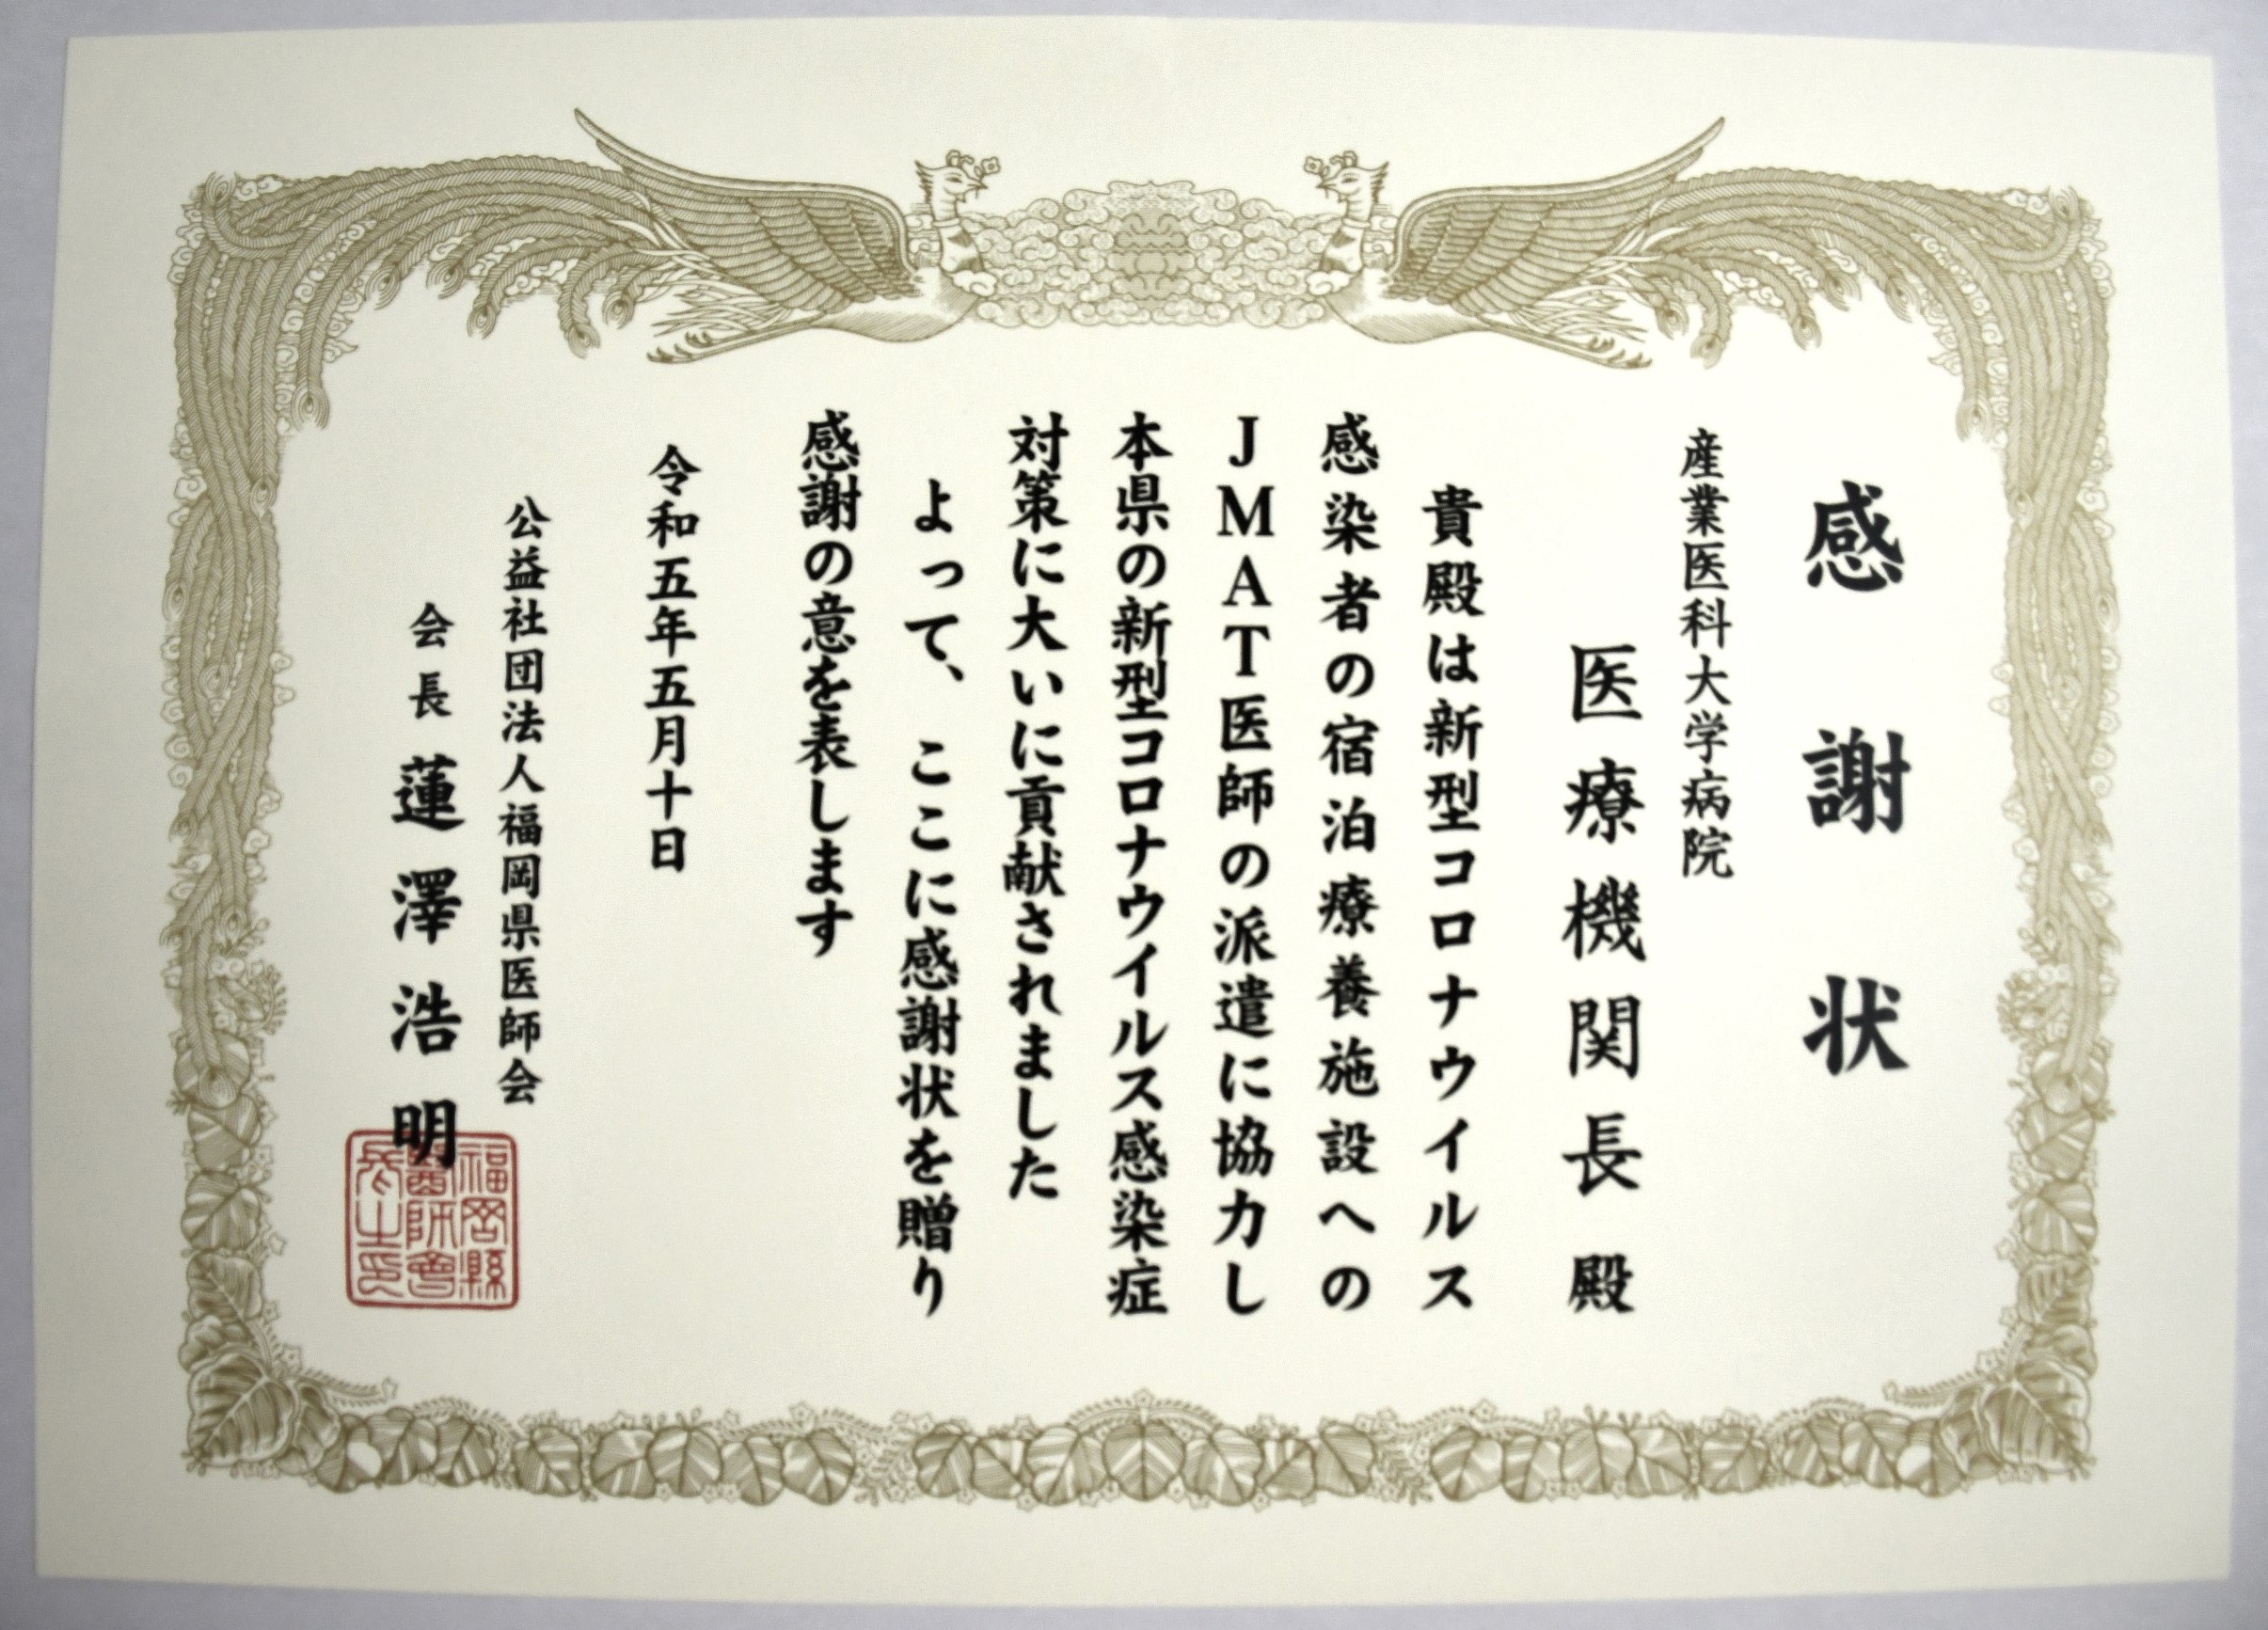 感謝状
産業医科大学病院
医療機関長 殿
貴殿は新型コロナウイルス
感染者の宿泊療養施設への
JMAT医師の派遣に協力し
本県の新型コロナウイルス感染症
対策に大いに貢献されました
よって、ここに感謝状を贈り
感謝の意を表します
令和五年五月十日
公益社団法人福岡県医師会
会長 蓮澤浩明
福岡縣
醫師會
長之印